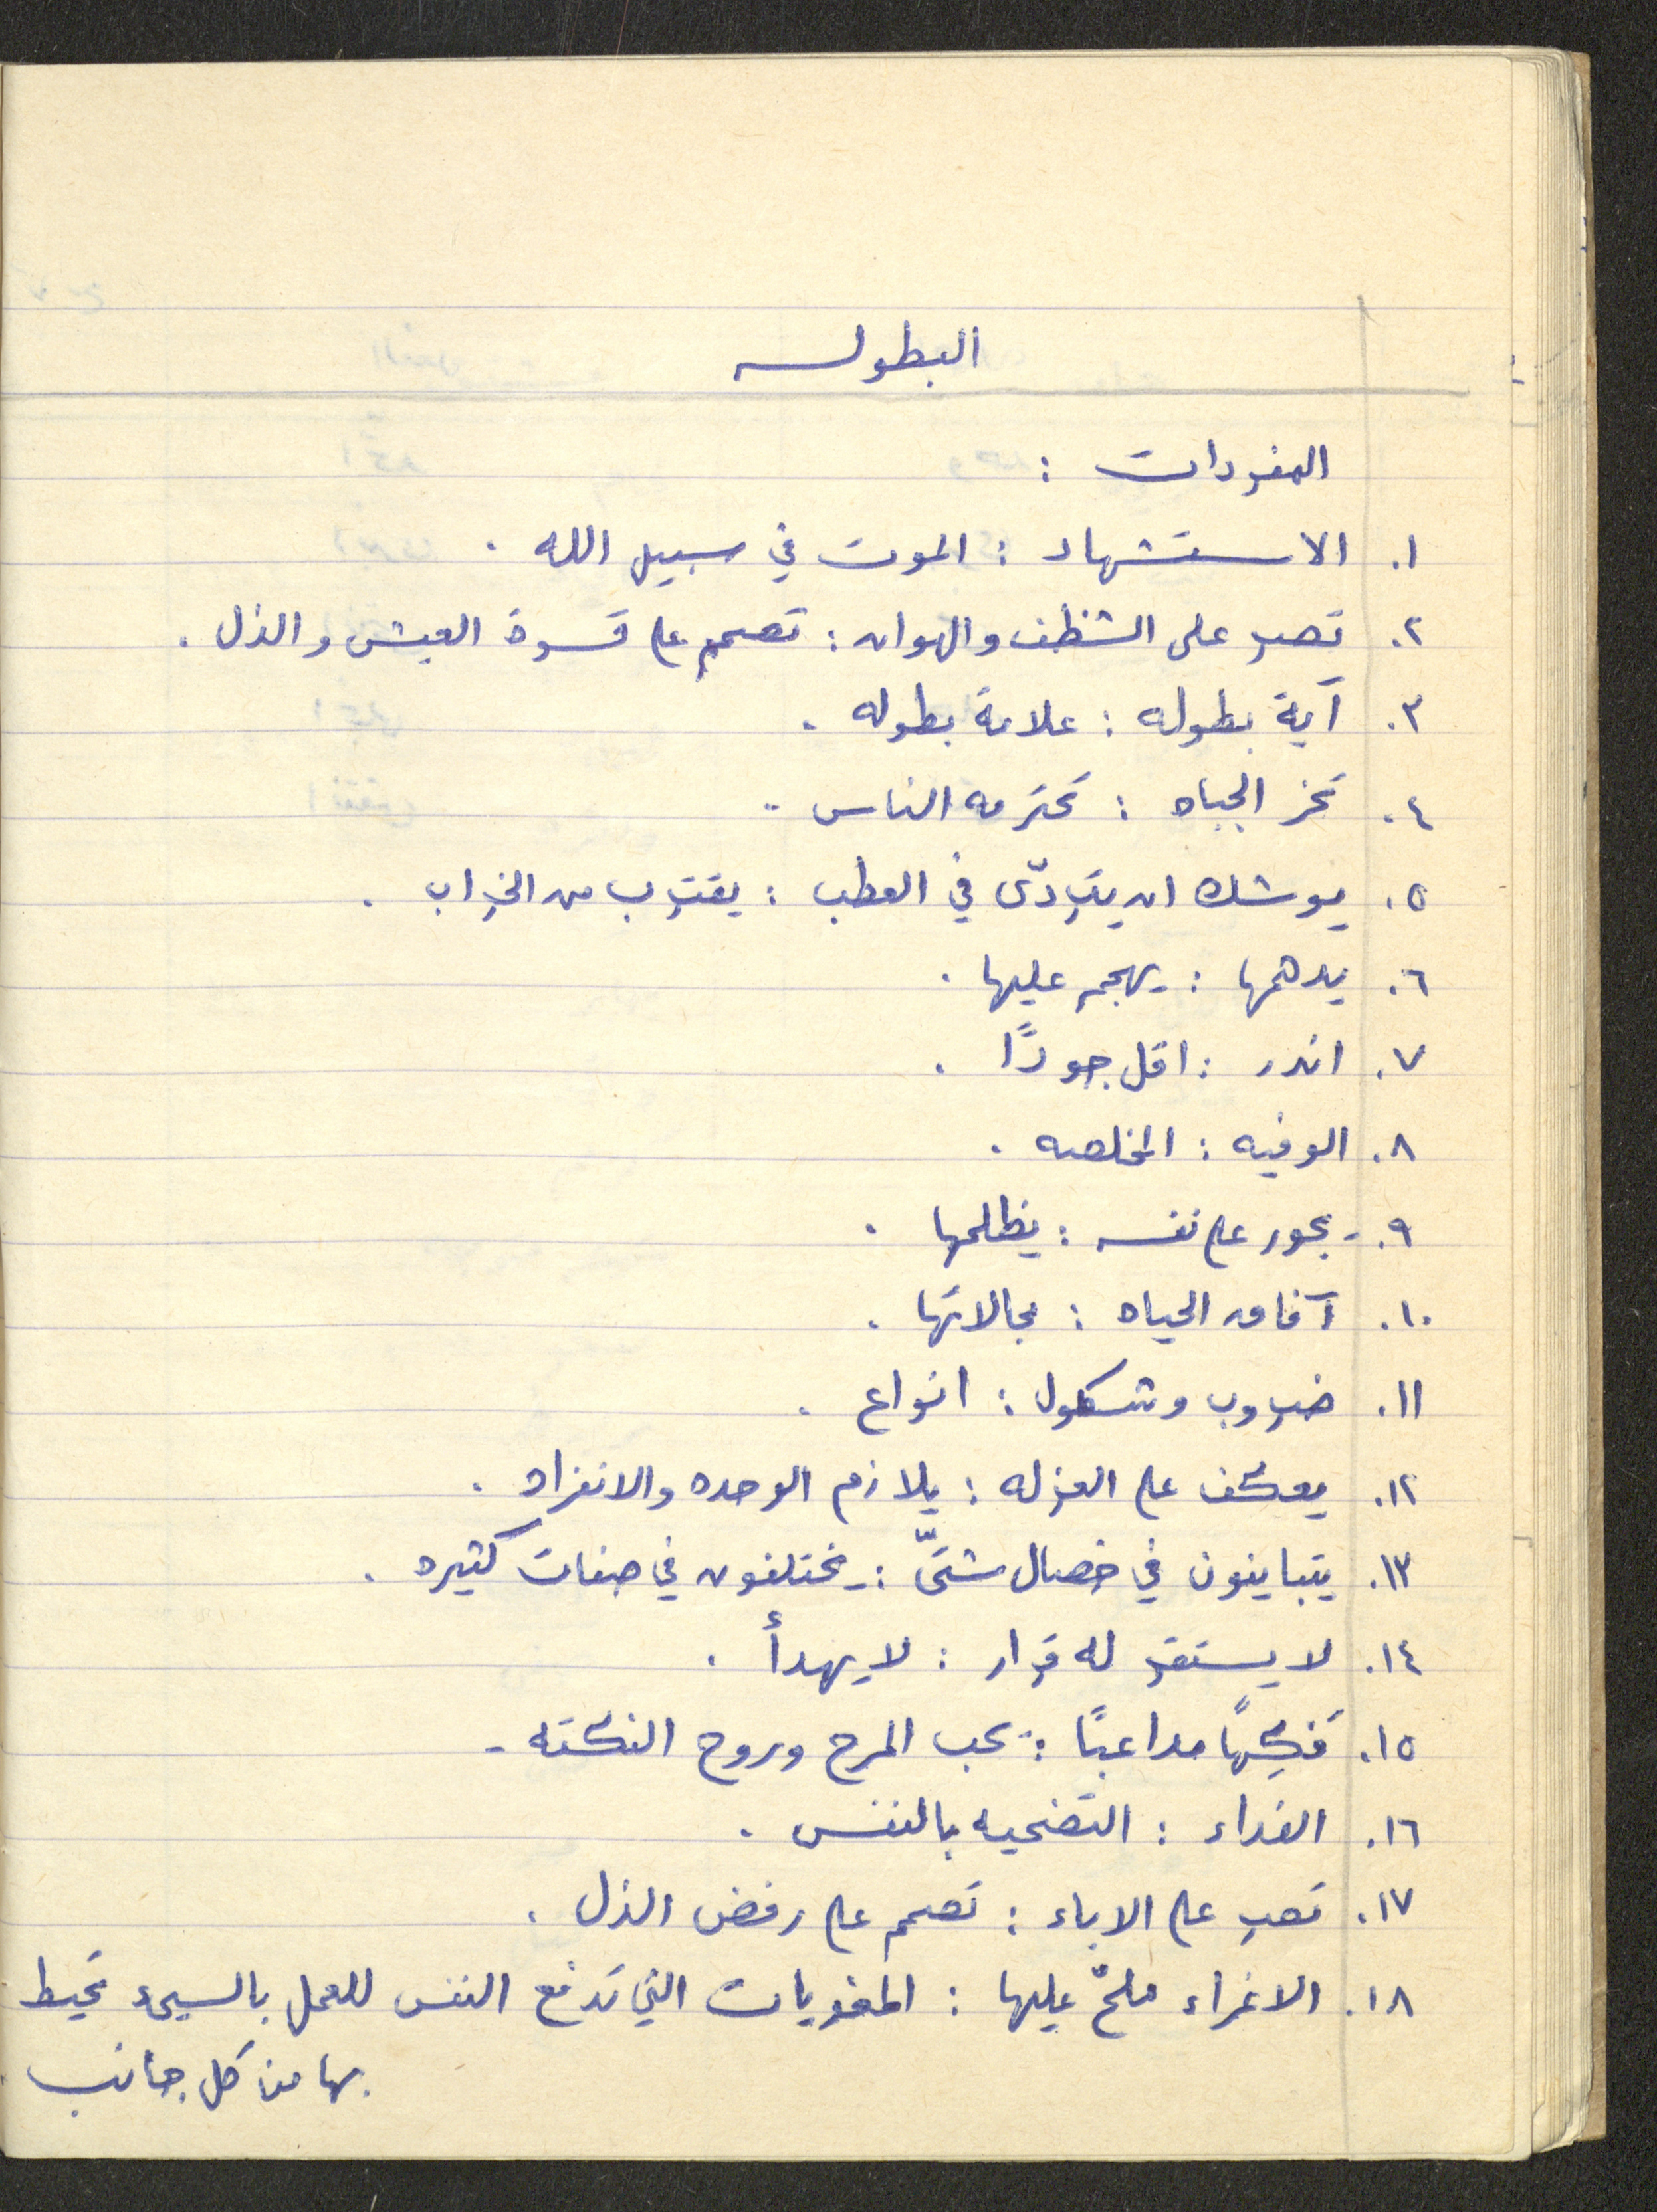 البطوله
المفردات :
١. الاستشهاد : الموت في سبيل الله .
٢. تصر على الشظف والهوان : تصمم على قسوة العيش والذل .
٣. آية بطوله : علامة بطوله .
٤. تخر الجباه : تحترمه الناس .
٥. يوشك ان يتردّى في العطب : يقترب من الخراب .
٦. يدهمها : يهجم عليها .
٧. اندر : اقل جودًا .
٨. الوفيه : المخلصه .
٩. يجور على نفسه : يظلمها .
١٠. آفاق الحياه : مجالاتها .
١١. ضروب وشكول : انواع .
١٢. يعكف على العزله : يلازم الوحده والانفراد .
١٣. يتباينون في خصال شتىّ : يختلفون في صفات كثيره .
١٤. لا يستقر له قرار : لا يهدأ .
١٥. فَكِهًا مداعبًا : يحب المرح وروح النكته .
١٦. الفداء : التضحيه بالنفس .
١٧. تصر على الاباء : تصمم على رفض الذل .
١٨. الاغراء ملحّ عليها : المغويات التي تدفع النفس للعمل بالسيء تحيط
بها من كل جانب .